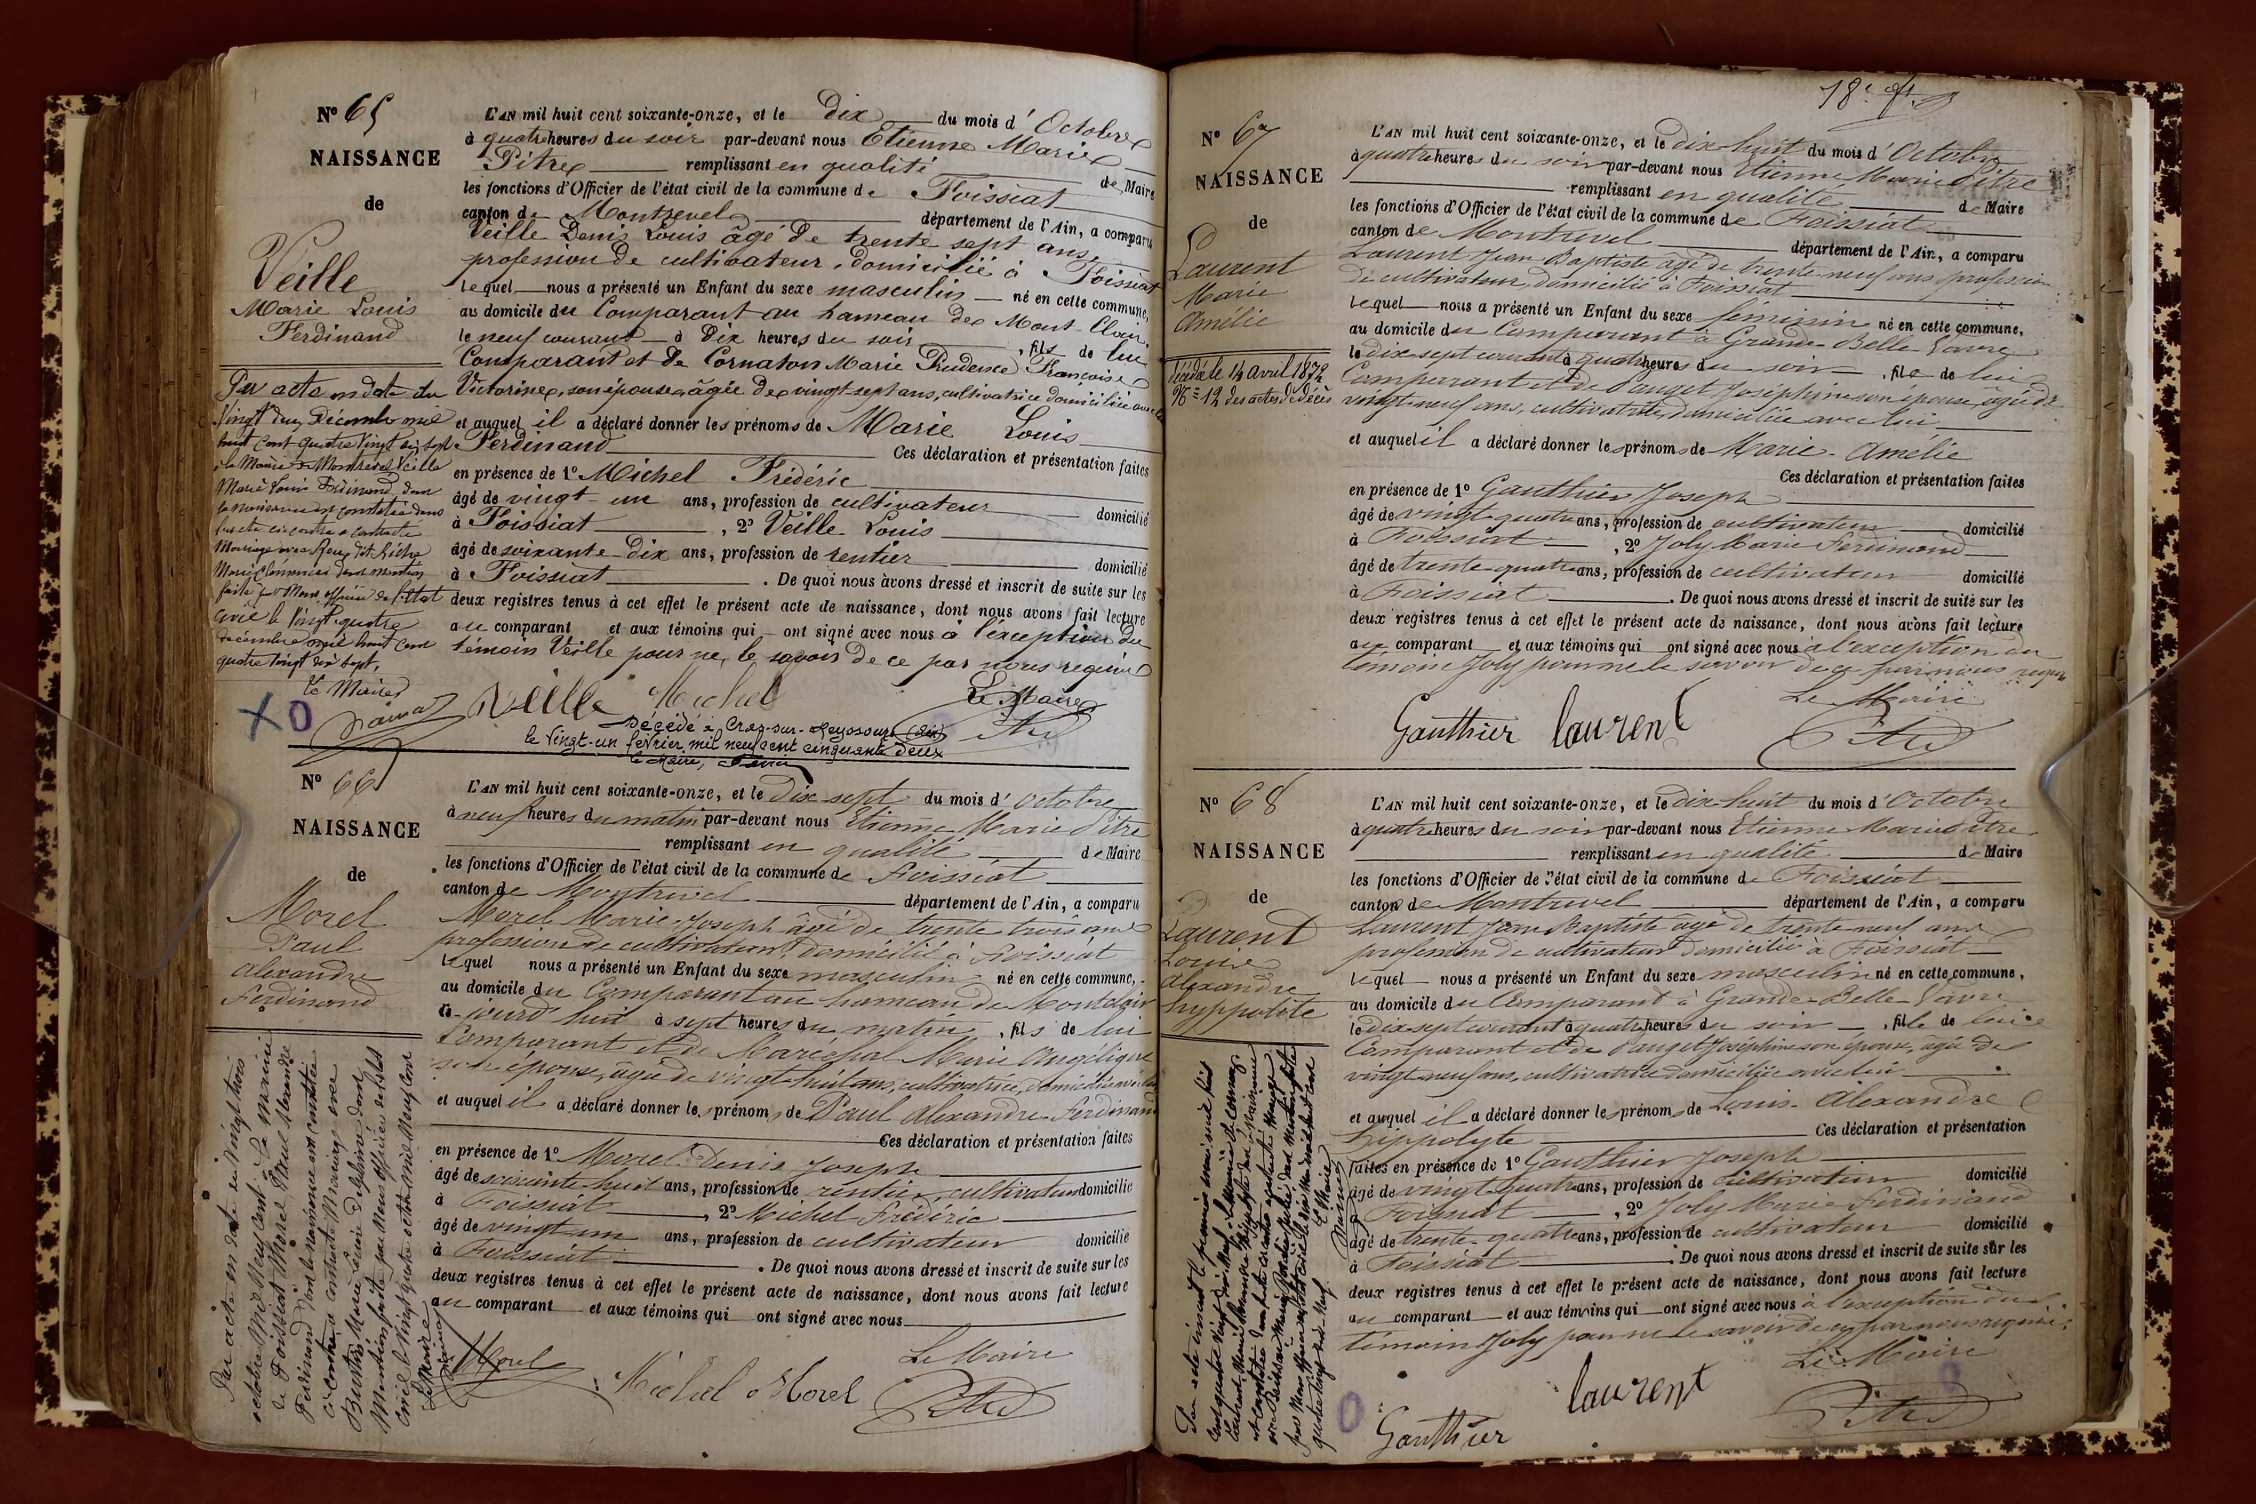 Nº 65
NAISSANCE
de
Veille
Marie Louis
Ferdinand
Par acte en date du
Vingt deux Décembre mil
huit cent quatre vingt dix sept
à la Mairie de Montrevel, Veille
Marie Louis Ferdinand dont
la naissance est constatée dans
l'acte ci-contre a contracté
Mariage avec
Marie Clémence dont mention
faite par Nous officier de l'Etat
Civil le Vingt quatre
décembre mil huit cent
quatre vingt dix sept.
Le Maire
L'AN mil huit cent soixante-onze, et le dix du mois d'Octobre
à quatre heures du soir par-devant nous Etienne Marie
Pitre remplissant en qualité de Maire
les fonctions d'Officier de l'état civil de la commune de Foissiat
canton de Montrevel département de l'Ain, a comparu
Veille Denis Louis âgé de trente sept ans,
profession de cultivateur, domicilié à Foissiat
lequel nous a présenté un Enfant du sexe masculin né en cette commune,
au domicile du Comparant au hameau de Mont-Clair
le neuf courant à dix heures du soir, fils de lui
Comparant et de Cornaton Marie Prudence Françoise
Victorine, son épouse, âgée de vingt-sept ans, cultivatrice domiciliée avec lui
et auquel il a déclaré donner les prénoms de Marie Louis
Ferdinand Ces déclaration et présentation faites
en présence de 1º Michel Frédéric
âgé de vingt-un ans, profession de cultivateur domicilié
à Foissiat, 2º Veille Louis
âgé de soixante-dix ans, profession de rentier domicilié
à Foissiat. De quoi nous avons dressé et inscrit de suite sur les
deux registres tenus à cet effet le présent acte de naissance, dont nous avons fait lecture
au comparant et aux témoins qui ont signé avec nous à l'exception du
témoin Veille pour ne le savoir de ce par nous requis
Veille Michel Le Maire
Pitre
Décédé à Cras-sur-Reyssouze (Ain)
le vingt-un février mil neuf cent cinquante deux
Le Maire,
Nº 66
NAISSANCE
de
Morel
Paul
Alexandre
Ferdinand
Par acte en date du Vingt trois
octobre Mil Neuf cent à la Mairie
de Foissiat Morel Paul Alexandre
Ferdinand dont la naissance est constatée
ci-contre a contracté Mariage avec
Marie Louise
Mention faite par Nous officier de l'état
civil le Vingt quatre octobre Mil Neuf Cent
Le Maire
L'AN mil huit cent soixante-onze, et le dix sept du mois d'Octobre
à neuf heures du matin par-devant nous Etienne Marie Pitre
remplissant en qualité de Maire
les fonctions d'Officier de l'état civil de la commune de Foissiat
canton de Montrevel département de l'Ain, a comparu
Morel Marie Joseph âgé de trente trois ans
profession de cultivateur, domicilié à Foissiat
lequel nous a présenté un Enfant du sexe masculin né en cette commune,
au domicile du Comparant au hameau de Montclair
ce jourd'huit à sept heures du matin, fils de lui
Comparant et de Maréchal Marie Angélique
son épouse, âgée de vingt-huit ans, cultivatrice, domiciliée avec lui
et auquel il a déclaré donner les prénoms de Paul Alexandre Ferdinand
Ces déclaration et présentation faites
en présence de 1º Morel Denis Joseph
âgé de soixante-huit ans, profession de rentier, cultivateur domicilié
à Foissiat, 2º Michel Frédéric
âgé de vingt un ans, profession de cultivateur domicilié
à Foissiat. De quoi nous avons dressé et inscrit de suite sur les
deux registres tenus à cet effet le présent acte de naissance, dont nous avons fait lecture
au comparant et aux témoins qui ont signé avec nous
Morel Michel Morel Le Maire
Pitre
18e
Nº 67
NAISSANCE
de
Laurent
Marie
Amélie
Décédée le 14 avril 1872
Nº 12 des actes de décès
L'AN mil huit cent soixante-onze, et le dix-huit du mois d'Octobre
à quatre heures du soir par-devant nous Etienne Marie Pitre
remplissant en qualité de Maire
les fonctions d'Officier de l'état civil de la commune de Foissiat
canton de Montrevel département de l'Ain, a comparu
Laurent Jean Baptiste âgé de trente-neuf ans, profession
de cultivateur, domicilié à Foissiat
lequel nous a présenté un Enfant du sexe féminin né en cette commune,
au domicile du Comparant à Grande Belle Vavre
le dix-sept courant à quatre heures du soir, fille de lui
Comparant et de Pauget Joséphine son épouse, âgée de
vingt-neuf ans, cultivatrice, domiciliée avec lui
et auquel il a déclaré donner les prénoms de Marie-Amélie
Ces déclaration et présentation faites
en présence de 1º Gauthier Joseph
âgé de vingt-quatre ans, profession de cultivateur domicilié
à Foissiat, 2º Joly Marie Ferdinand
âgé de trente-quatre ans, profession de cultivateur domicilié
à Foissiat. De quoi nous avons dressé et inscrit de suite sur les
deux registres tenus à cet effet le présent acte de naissance, dont nous avons fait lecture
au comparant et aux témoins qui ont signé avec nous à l'exception du
témoin Joly pour ne le savoir de ce par nous requis
Le Maire
Gauthier laurent Pitre
Nº 68
NAISSANCE
de
Laurent
Louis
Alexandre
hyppolite
L'AN mil huit cent soixante-onze, et le dix-huit du mois d'Octobre
à quatre heures du soir par-devant nous Etienne Marie Pitre
remplissant en qualité de Maire
les fonctions d'Officier de l'état civil de la commune de Foissiat
canton de Montrevel département de l'Ain, a comparu
Laurent Jean Baptiste âgé de trente-neuf ans
profession de cultivateur domicilié à Foissiat
lequel nous a présenté un Enfant du sexe masculin né en cette commune,
au domicile du Comparant à Grande-Belle-Vavre
le dix-sept courant à quatre heures du soir, fils de lui
Comparant et de Pauget Joséphine son épouse, âgée de
vingt-neuf ans, cultivatrice domiciliée avec lui
et auquel il a déclaré donner les prénoms de Louis-Alexandre
hippolyte Ces déclaration et présentation
faites en présence de 1º Gauthier Joseph
âgé de vingt-quatre ans, profession de cultivateur domicilié
à Foissiat, 2º Joly Marie Ferdinand
âgé de trente-quatre ans, profession de cultivateur domicilié
à Foissiat. De quoi nous avons dressé et inscrit de suite sur les
deux registres tenus à cet effet le présent acte de naissance, dont nous avons fait lecture
au comparant et aux témoins qui ont signé avec nous à l'exception du
témoin Joly pour ne le savoir de ce par nous requis
Le Maire
laurent
Gauthier Pitre